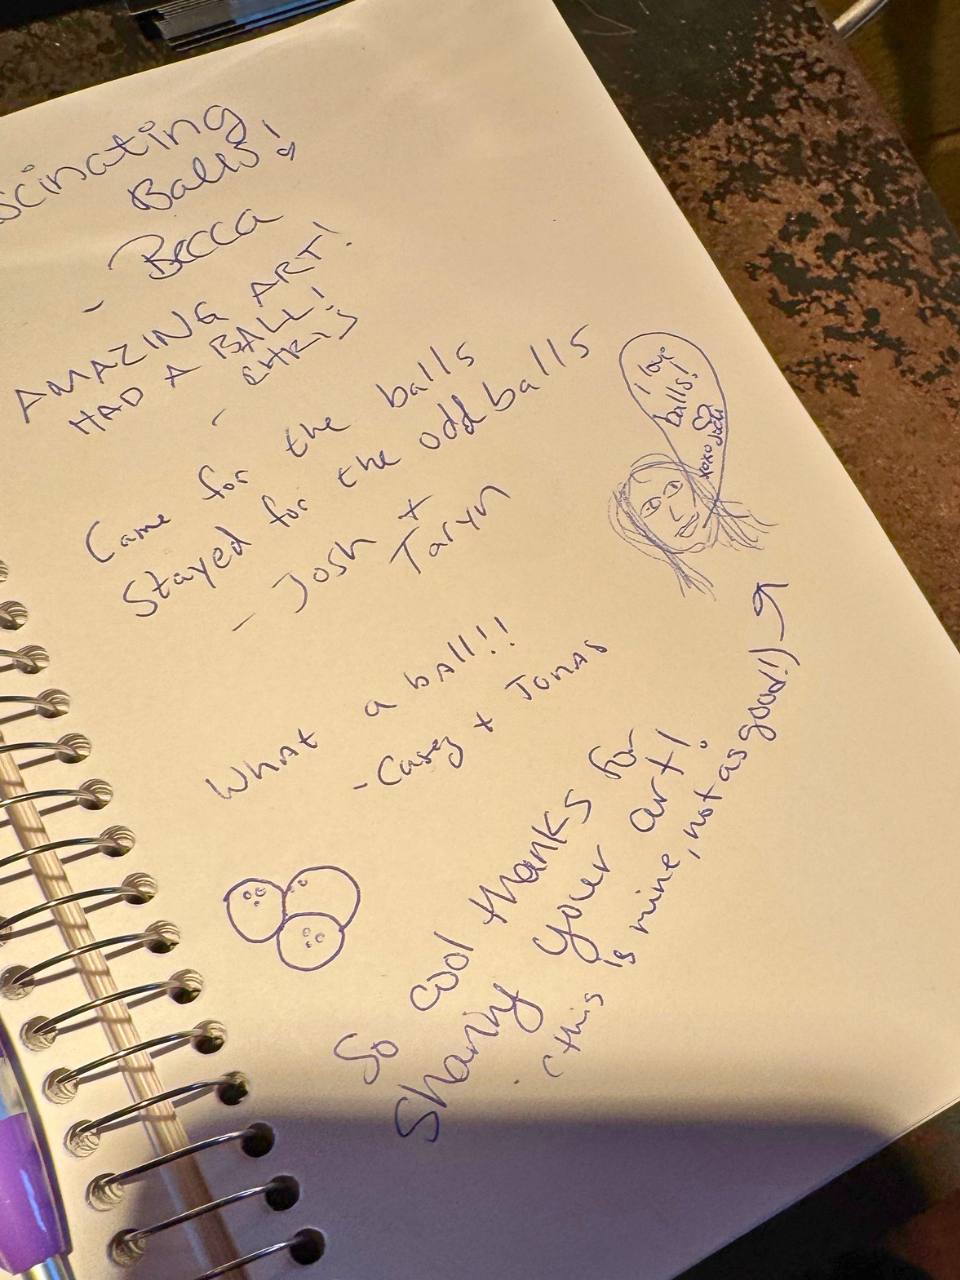 scinating
Balls!
- Becca
AMAZING ART!
HAD A BALL!
- CHRIS
Came for the balls
Stayed for the odd balls
- Josh +
Taryn
I love
balls!
xoxo
WhAt a bAll!!
- Casey + JonAs
So cool thanks for
Sharing your art!
(this is mine, not as good!)